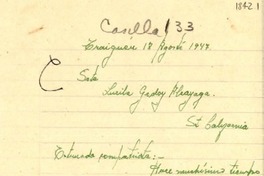 1842 1
Casilla 133
Traiguén 18 Agosto 1947.
Srta
Lucila Godoy Alcayaga.
St California
Estimada compatriota:-
Hace muchísimo tiempo